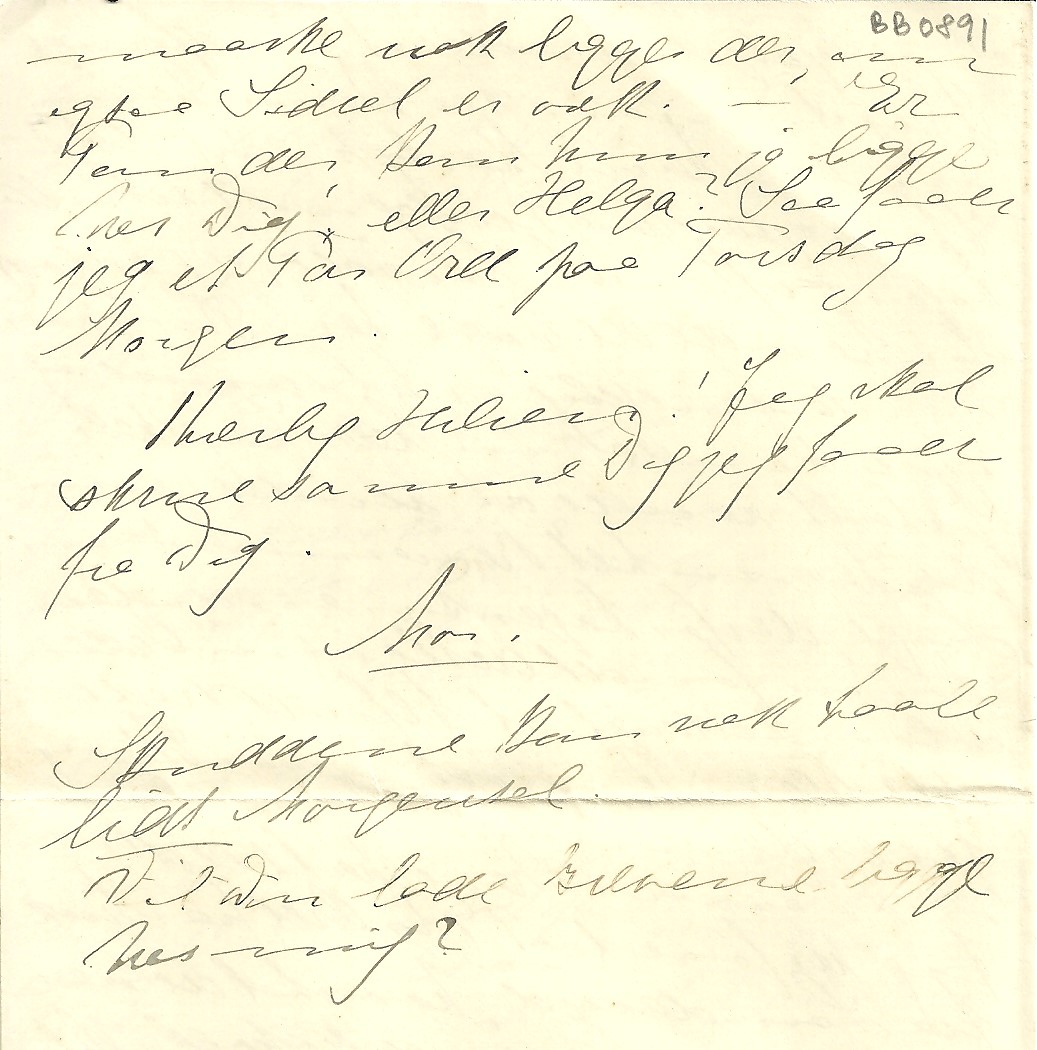 BB0891
maaske nok ligge der, om
ogsaa Sidsel er væk. — Er
der, kan hun jo ligge
hos Dig! eller Helga? Saa faaer
jeg et Par Ord paa Torsdag
Morgen.
Kærlig Hilsen! Jeg skal
skrive samme Dag jeg faaer
fra Dig.
Mor.
kan nok taale
lidt Morgensol.
Vil Du lade Brevene ligge
hos mig?